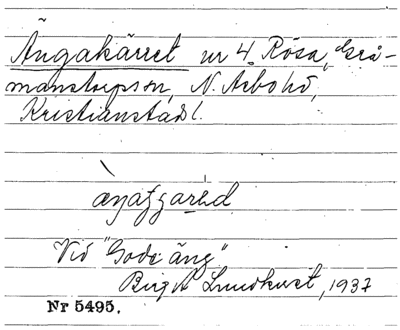 Ängakärret ur 4. Rösa, Grå-
manstorpssn, N. Åsbo hd,
Kristianstads l.
Vid "Gode äng"
Birgit Lundkvist, 1937
Nr 5495.